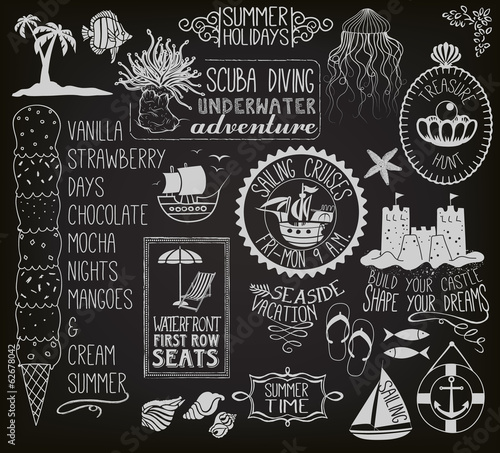 SUMMER
HOLIDAYS
SCUBA DIVING
UNDERWATER
adventure
TREASURE
HUNT
VANILLA
STRAWBERRY
DAYS
CHOCOLATE
MOCHA
NIGHTS
MANGOES
&
CREAM
SUMMER
SAILING CRUISES
FRI-MON 9 AM
BUILD YOUR CASTLE
SHAPE YOUR DREAMS
WATERFRONT
FIRST ROW
SEATS
SEASIDE
VACATION
SUMMER
TIME
SAILING
Adobe Stock | #62678042